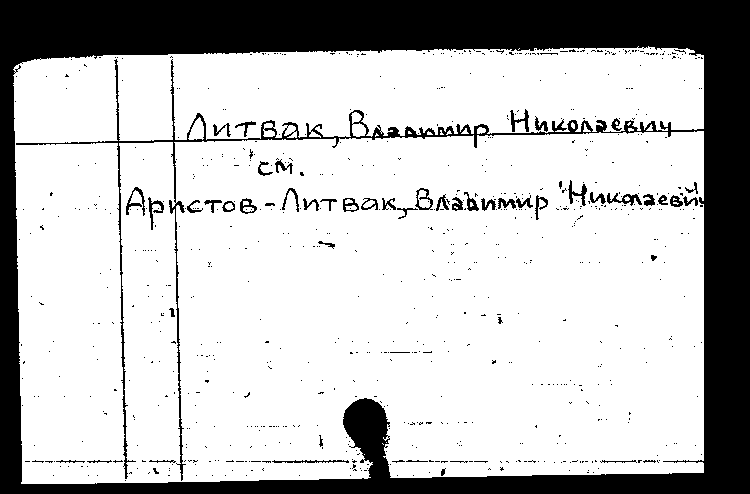 Литвак, Владимир Николаевич
см.
Аристов-Литвак, Владимир Николаевич